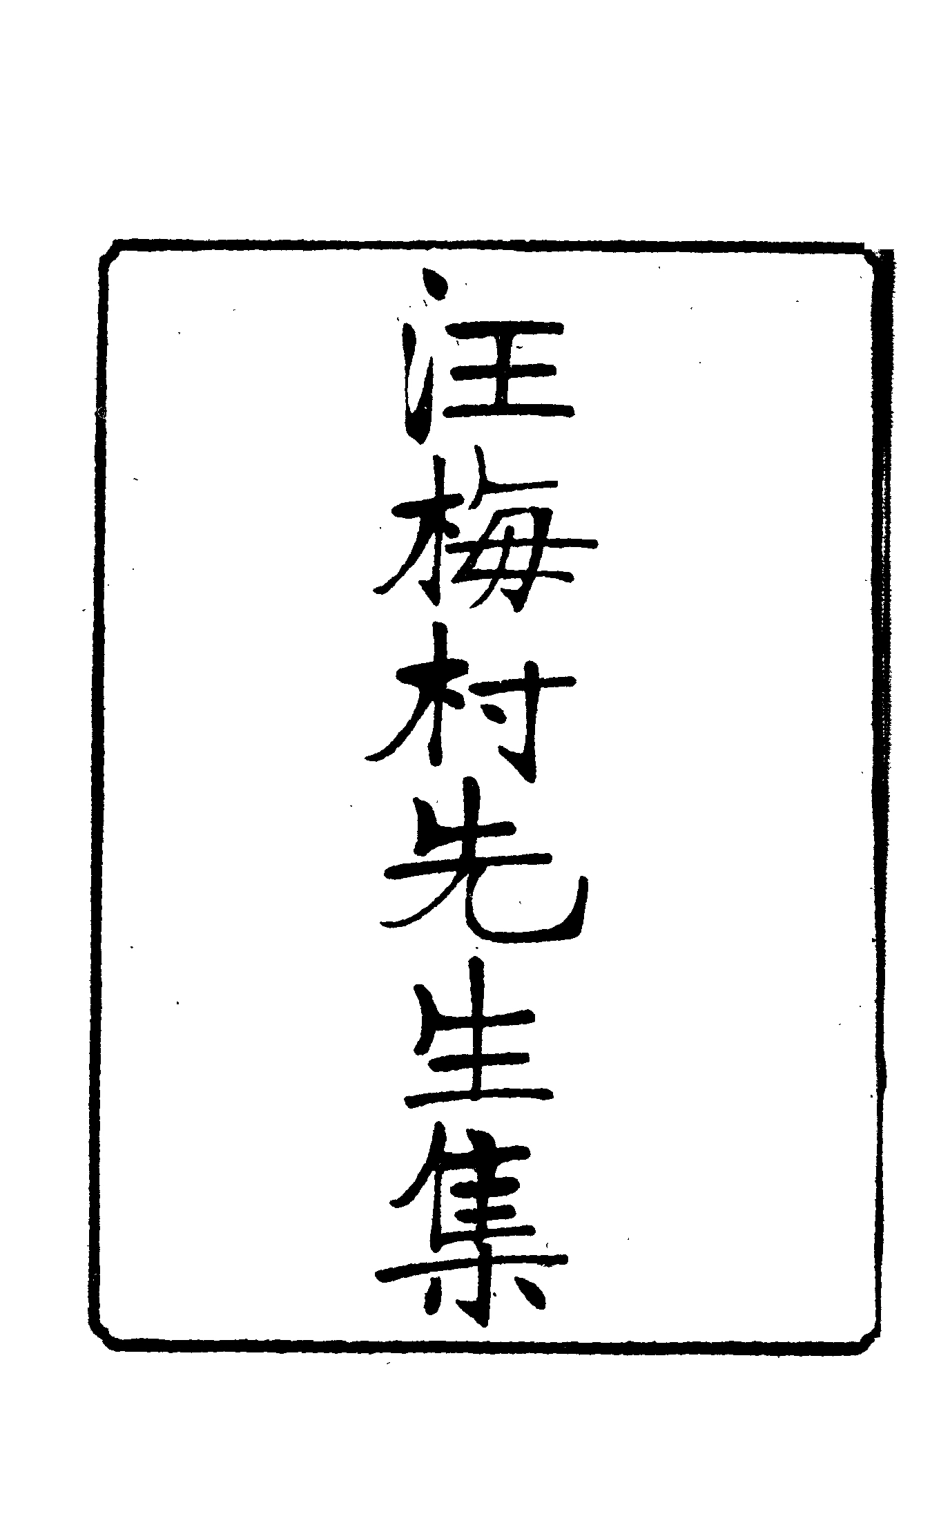 汪梅村先生集